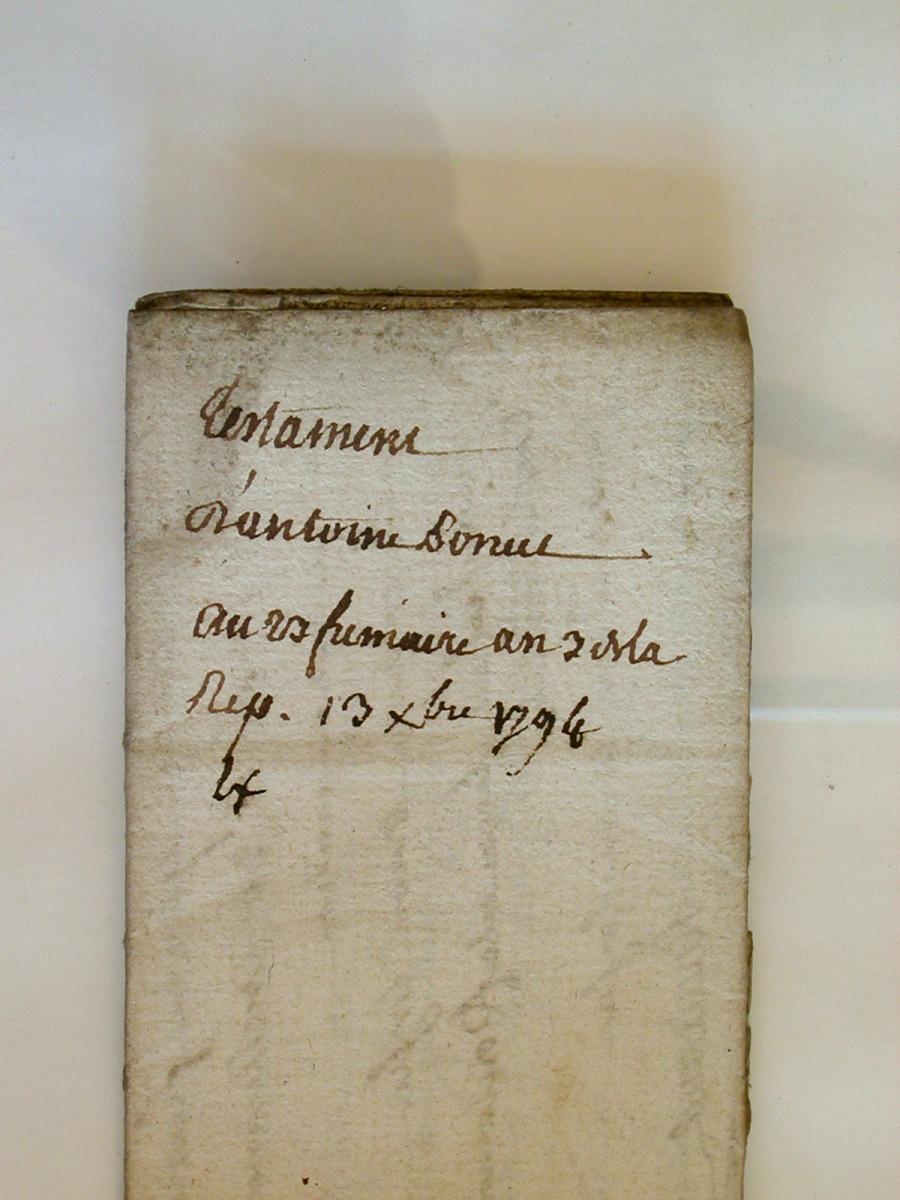 Testament
D'antoine Bonnet
Au 23 frimaire an 3 de la
Rep. 13 xbre 1794